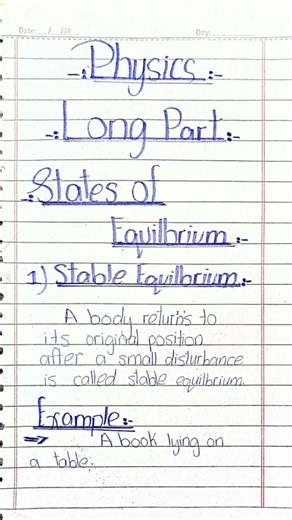 Date: __/__/20__ Day:
-: Physics :-
-: Long Part :-
-: States of
Equilbrium :-
1) Stable Equilbrium :-
A body returns to
its original position
after a small disturbance
is called stable equilbrium.
Example :-
⇒ A book lying on
a table.